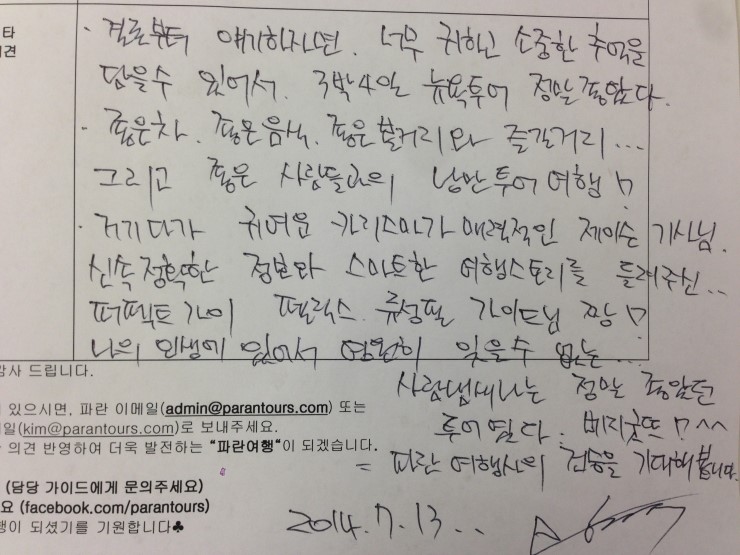 타
견
· 결론부터 얘기하자면. 너무 귀하고 소중한 추억을
담을수 있어서. 3박4일 뉴욕투어 정말좋았다.
· 좋은차. 좋은음식. 좋은볼거리와 즐길거리...
그리고 좋은 사람들과의 낭만투어여행!?
· 거기다가 귀여운 카리스마가 매력적인 제이슨 기사님.
신속정확한 정보와 스마트한 여행스토리를 들려주신..
퍼펙트가이 펠릭스. 류성필 가이드님 짱!?
나의 인생에 있어서 영원히 잊을수 없는...
사람냄새나는 정말 좋았던
투어였다. 베리굿뜨!?^^
= 파란여행사의 건승을 기대해봅니다.
2014.7.13..
감사 드립니다.
있으시면, 파란 이메일(admin@parantours.com) 또는
일(kim@parantours.com)로 보내주세요.
의견 반영하여 더욱 발전하는 "파란여행"이 되겠습니다.
(담당 가이드에게 문의주세요)
요 (facebook.com/parantours)
행이 되셨기를 기원합니다♣